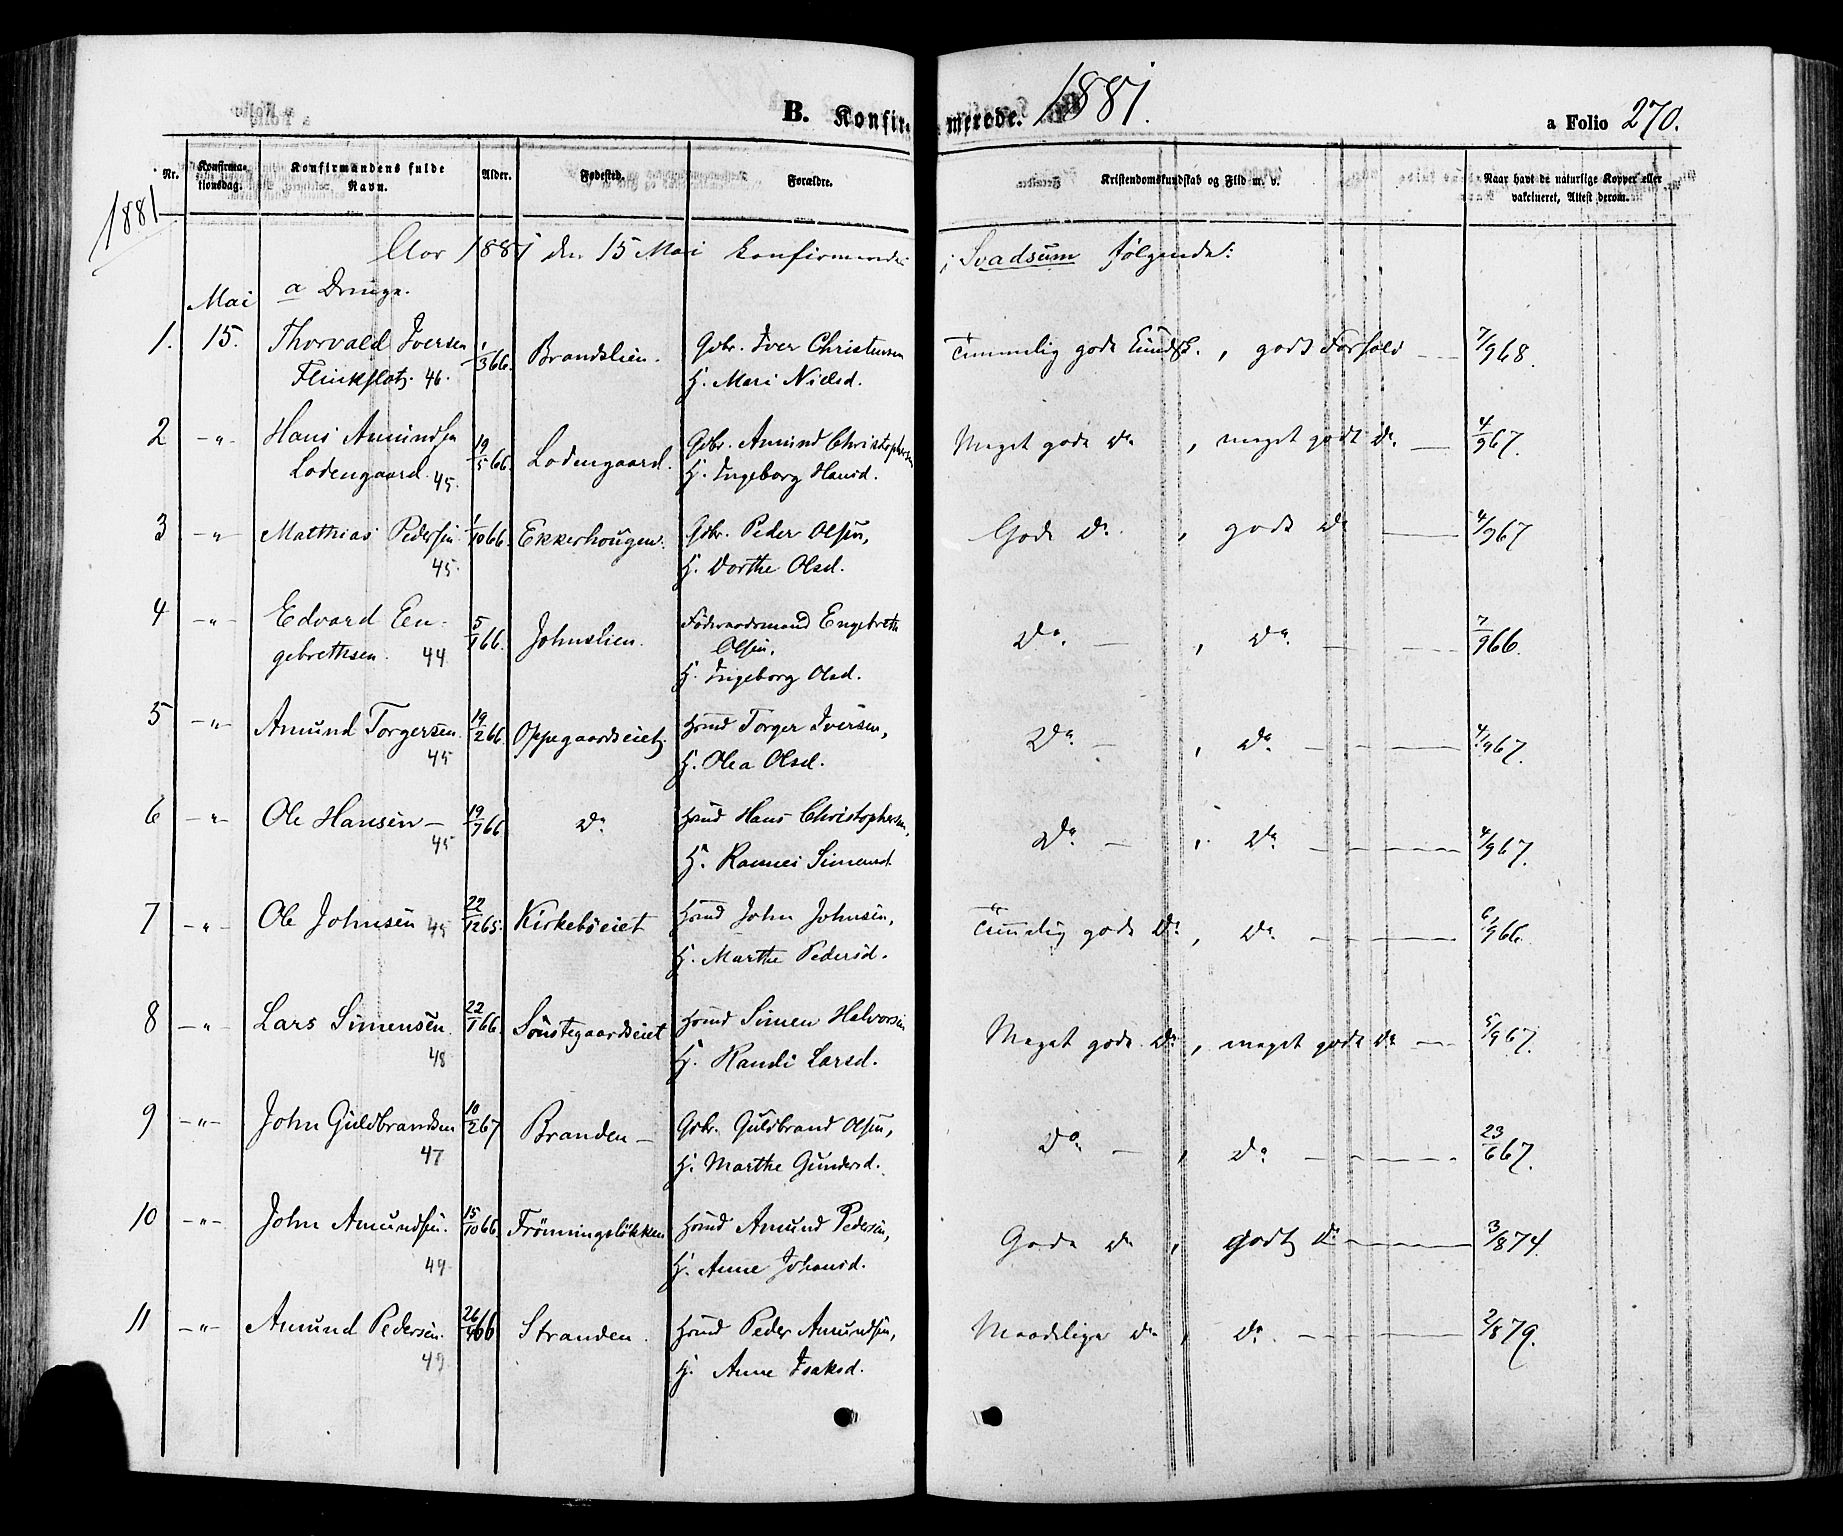 B. Konfirmerede. 1881.
a Folio 270.
1881
Nr. Konfirmationsdag. Konfirmandens fulde Navn. Alder. Fødested. Forældre. Kristendomskundskab og Flid m. v. Naar havt de naturlige Kopper eller vakcineret, Attest derom.
Aar 1881 den 15 Mai konfirmerede i Svadsum følgende:
a Drenge.
Mai
1. 15. Thorvald Iversen 1/3 66. Brandslien. Gbr. Iver Christensen Temmelig gode Kundsk., godt Forhold 7/9 68.
Flinkflatz. 46. H. Mari Nielsd.
2 -„- Hans Amundsen 19/5 66. Lodengaard. Gbr. Amund Christophersen Meget gode Do, meget godt Do 4/9 67.
Lodengaard. 45. H. Ingeborg Hansd.
3 -„- Matthias Pedersen 1/10 66. Ekkerhougen. Gbr. Peder Olsen, Gode Do, godt Do 4/9 67
45. H. Dorthe Olsd.
4 -„- Edvard En- 5/1 66. Johnslien. Føderaadsmand Engebreth Do. — , Do. 7/9 66.
gebrethsen. 44 Olsen,
H. Ingeborg Olsd.
5 -„- Amund Torgersen. 19/2 66. Oppegaardseiet. Hmd Torger Iversen, Do. — , Do. 4/9 67.
45 H. Olea Olsd.
6 -„- Ole Hansen — 19/7 66 Do. Hmd Hans Christophersen, Do. — , Do. 4/9 67.
45 H. Rannei Simensd.
7 -„- Ole Johnsen 45 22/12 65. Kirkebøeiet Hmd John Johnsen, Temmelig gode Do, Do. 6/9 66.
H. Marthe Pedersd.
8 -„- Lars Simensen. 22/1 66. Sønstegaardseiet Hmd Simen Halvorsen Meget gode Do, meget godt Do 5/9 67.
48 H. Randi Larsd.
9 -„- John Guldbrandsen 10/2 67 Branden — Gbr. Guldbrand Olsen, Do. — , Do. 23/6 67.
47 H. Marthe Gundersd.
10 -„- John Amundsen. 15/10 66. Frönningsløkken Hmd Amund Pedersen, Gode Do, godt Do 3/8 74.
49. H. Anne Johansd.
11 -„- Amund Pedersen. 26/4 66 Stranden. Hmd Peder Amundsen, Maadelige Do, Do. 2/8 79.
49 H. Anne Isaksd.